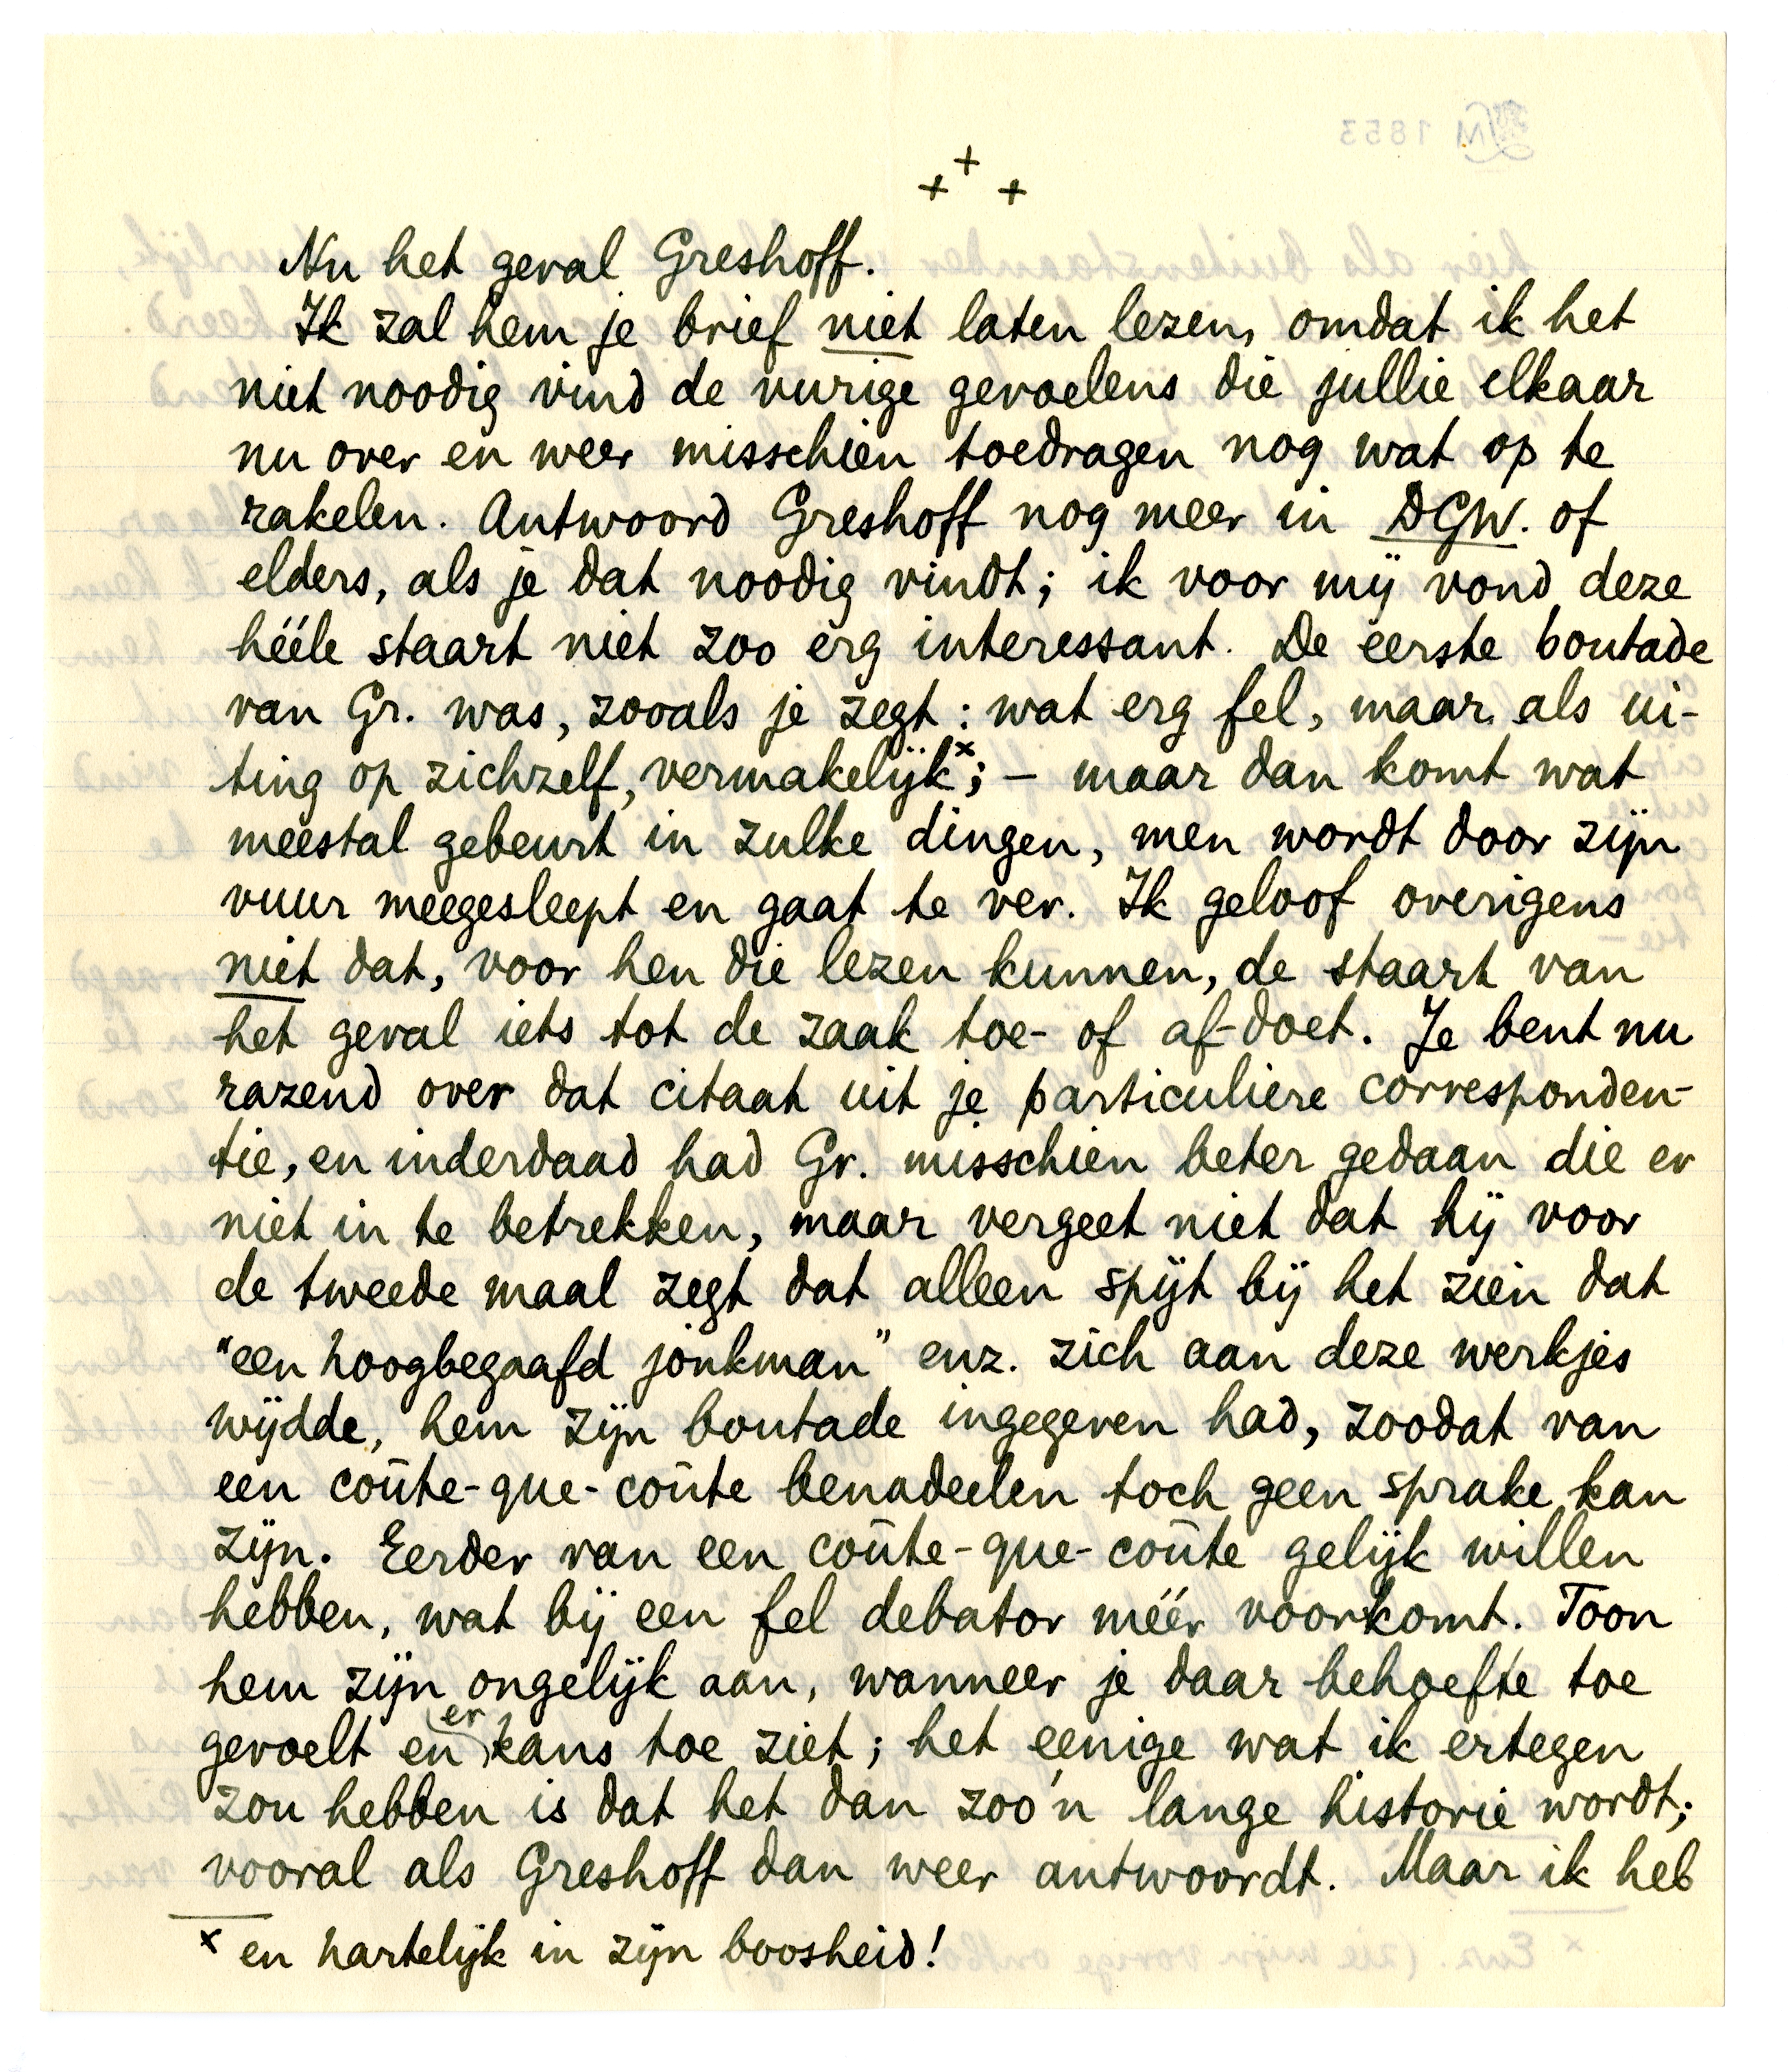 + + +
Nu het geval Greshoff.
Ik zal hem je brief niet laten lezen, omdat ik het
niet noodig vind de vurige gevoelens die jullie elkaar
nu over en weer misschien toedragen nog wat op te
rakelen. Antwoord Greshoff nog meer in DGW. of
elders, als je dat noodig vindt; ik voor mij vond deze
héele staart niet zoo erg interessant. De eerste boutade
van Gr. was, zooals je zegt: wat erg fel, maar als ui-
ting op zichzelf, vermakelijk x; – maar dan komt wat
meestal gebeurt in zulke dingen, men wordt door zijn
vuur meegesleept en gaat te ver. Ik geloof overigens
niet dat, voor hen die lezen kunnen, de staart van
het geval iets tot de zaak toe- of af-doet. Je bent nu
razend over dat citaat uit je particuliere corresponden-
tie, en inderdaad had Gr. misschien beter gedaan die er
niet in te betrekken, maar vergeet niet dat hij voor
de tweede maal zegt dat alleen spijt bij het zien dat
"een hoogbegaafd jonkman" enz. zich aan deze werkjes
wijdde, hem zijn boutade ingegeven had, zoodat van
een coûte-que-coûte benadeelen toch geen sprake kan
zijn. Eerder van een coûte-que-coûte gelijk willen
hebben, wat bij een fel debator méér voorkomt. Toon
hem zijn ongelijk aan, wanneer je daar behoefte toe
gevoelt en er kans toe ziet; het eenige wat ik ertegen
zou hebben is dat het dan zoo'n lange historie wordt;
vooral als Greshoff dan weer antwoordt. Maar ik heb
x en hartelijk in zijn boosheid!